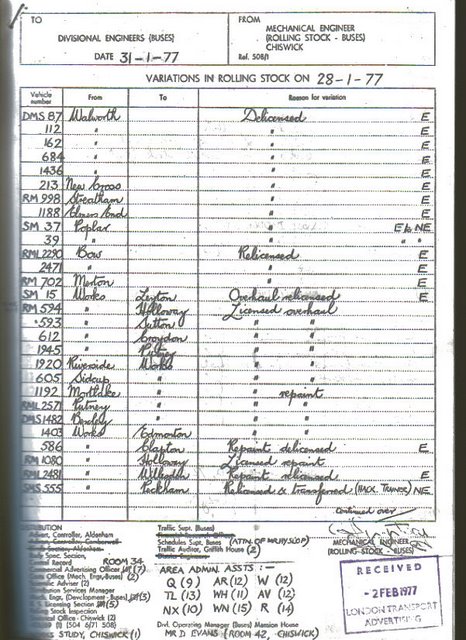 TO
FROM
DIVISIONAL ENGINEERS (BUSES)
MECHANICAL ENGINEER
(ROLLING STOCK - BUSES)
CHISWICK
DATE 31-1-77
Ref. 508/1
VARIATIONS IN ROLLING STOCK ON 28-1-77
Vehicle number From To Reason for variation
DMS 87 Walworth Delicensed E
112 " " E
162 " " E
684 " " E
1436 " " E
213 New Cross " E
RM 998 Streatham " E
1188 Elmers End " E
SM 37 Poplar " E to NE
39 " " " "
RML 2290 Bow Relicensed E
2471 " " E
RM 702 Merton " E
SM 15 Works Leyton Overhaul relicensed E
RM 594 " Holloway Licensed overhaul
593 " Sutton " "
612 " Croydon " "
1945 " Putney " "
1920 Riverside Works " "
605 Sidcup " " "
1192 Mortlake " " repaint
RML 2571 Putney " " "
DMS 1482 Bexley " " "
1403 Works Edmonton " "
586 " Clapton Repaint delicensed E
RM 1080 " Holloway Licensed repaint
RML 2481 " Willesden Repaint relicensed E
SMS 555 " Peckham Relicensed & transferred (MACK. TRUNDS) NE
continued over
MECHANICAL ENGINEER
(ROLLING STOCK - BUSES)
DISTRIBUTION
Controller, Aldenham
Body Spec. Section,
Central Record ROOM 34
Commercial Advertising Officer (7)
Costs Office (Mech. Engr. Buses) (2)
Scientific Adviser (2)
Distribution Services Manager
Mech. Engr. (Development - Buses) (3)
R. S. Licensing Section (5)
Rolling Stock Inspection
Technical Office - Chiswick (2)
(1504 6/71 508)
STUDY, CHISWICK (1)
Traffic Supt. (Buses)
Schedules Supt. (Buses) (ATTN. OF MR HYSLOP)
Traffic Auditor, Griffith House (2)
AREA ADMIN. ASSTS :-
Q (9) AR (12) W (12)
TL (13) WH (11) AV (12)
NX (10) WN (15) R (14)
Divl. Operating Manager (Buses) Mansion House
MR D EVANS (ROOM 42, CHISWICK)
RECEIVED
- 2 FEB 1977
LONDON TRANSPORT
ADVERTISING